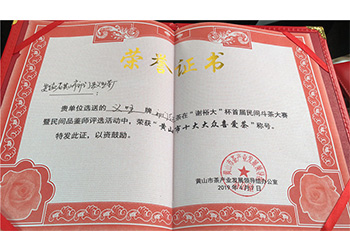 荣誉证书
贵单位选送的 义 牌 茶在“谢裕大”杯首届民间斗茶大赛
暨民间品鉴师评选活动中，荣获“黄山市十大大众喜爱茶”称号。
特发此证，以资鼓励。
黄山市茶产业发展领导组办公室
2019年4月9日